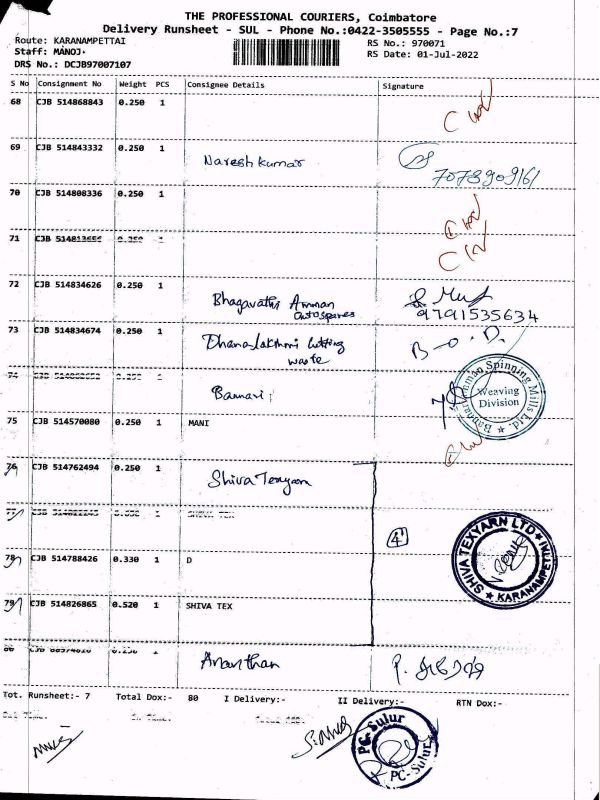 THE PROFESSIONAL COURIERS, Coimbatore
Delivery Runsheet - SUL - Phone No.:0422-3505555 - Page No.:7
Route: KARANAMPETTAI
Staff: MANOJ.
DRS No.: DCJB97007107
RS No.: 970071
RS Date: 01-Jul-2022
S No Consignment No Weight PCS Consignee Details Signature
68 CJB 514868843 0.250 1
69 CJB 514843332 0.250 1 Naresh kumar
70 CJB 514808336 0.250 1
71 CJB 0.250 1
72 CJB 514834626 0.250 1 Bhagavathi Amman
autospares
9791535634
73 CJB 514834674 0.250 1 Dhanalakhmi Cutting
waste
B-O.D.
74 Bannari
Bannari Amman Spinning Mills Ltd.
Weaving
Division
75 CJB 514570080 0.250 1 MANI
76 CJB 514762494 0.250 1 Shiva Texyarn
77 SHIVA TEX
4
SHIVA TEXYARN LTD
KARANAMPETTAI
78 CJB 514788426 0.330 1 D
79 CJB 514826865 0.520 1 SHIVA TEX
80 Ananthan
Tot. Runsheet:- 7 Total Dox:- 80 I Delivery:- II Delivery:- RTN Dox:-
PC-Sulur
PC-Sulur